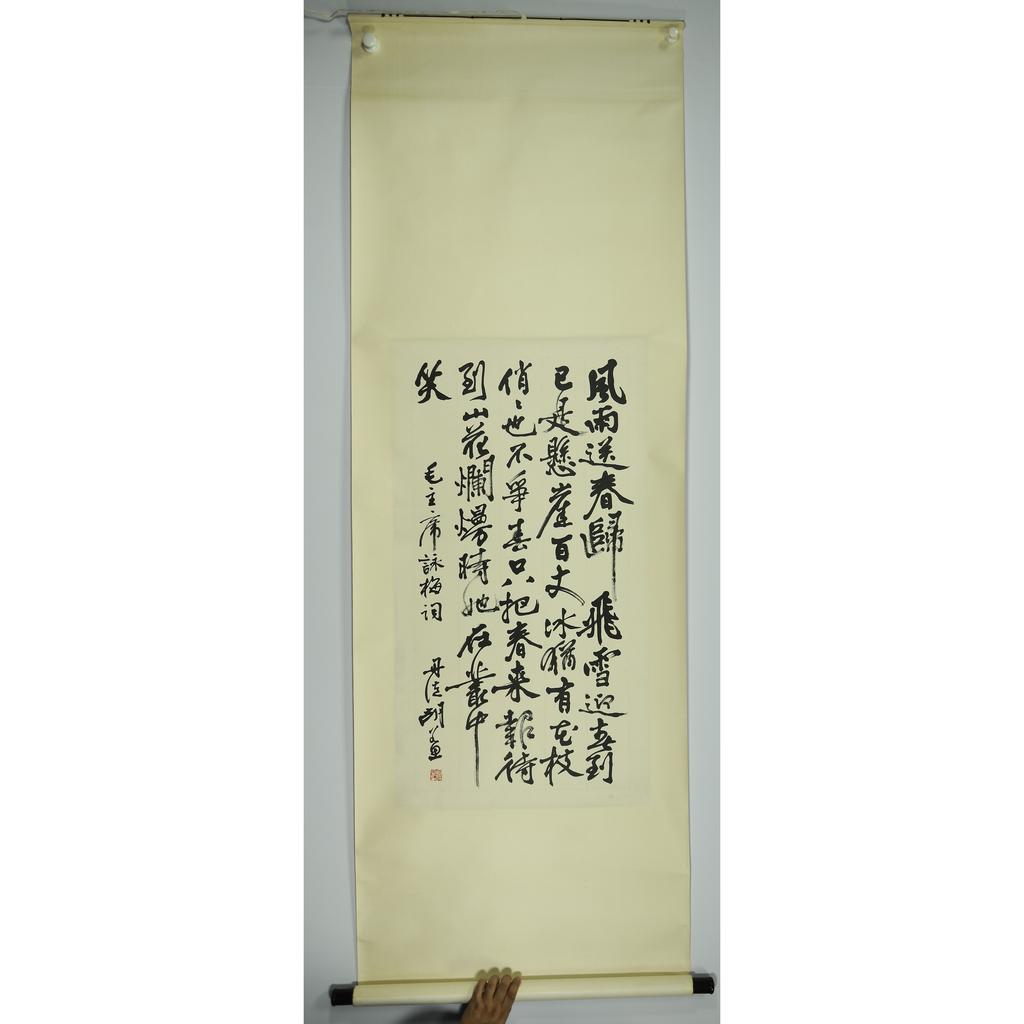 風雨送春歸飛雪迎春到
已是懸崖百丈冰猶有花枝
俏〻也不爭春只把春来報待
到山花爛熳時她在叢中
笑
毛主席詠梅詞
丹徒胡